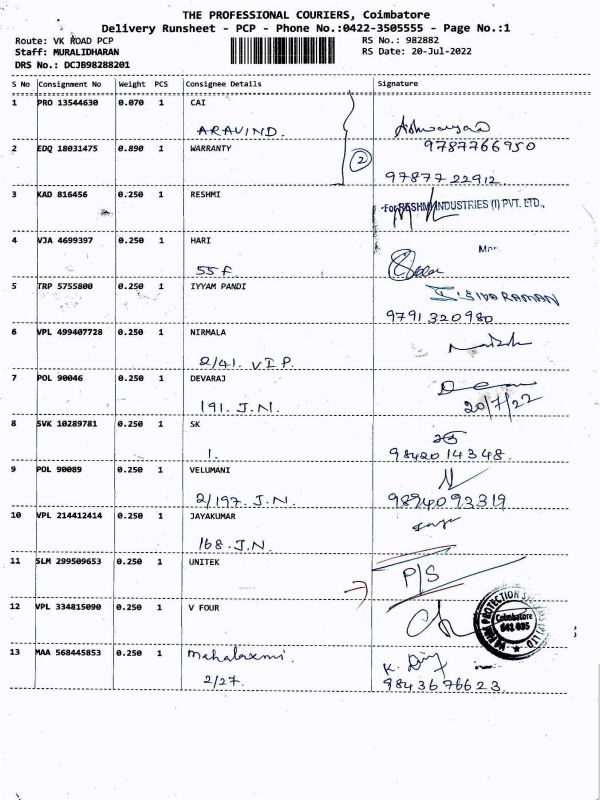 THE PROFESSIONAL COURIERS, Coimbatore
Delivery Runsheet - PCP - Phone No.:0422-3505555 - Page No.:1
Route: VK ROAD PCP RS No.: 982882
Staff: MURALIDHARAN RS Date: 20-Jul-2022
DRS No.: DCJB98288201
S No Consignment No Weight PCS Consignee Details Signature
1 PRO 13544630 0.070 1 CAI
ARAVIND.
2 EDQ 18031475 0.890 1 WARRANTY 9787766950
2
97877 22912
3 KAD 816456 0.250 1 RESHMI
For RESHMI INDUSTRIES (I) PVT. LTD.,
4 VJA 4699397 0.250 1 HARI
55 F
5 TRP 5755800 0.250 1 IYYAM PANDI
SIVARAMAN
9791 320980
6 VPL 499407728 0.250 1 NIRMALA
2/41. V I P.
7 POL 90046 0.250 1 DEVARAJ
191. J.N. 20/7/22
8 SVK 10289781 0.250 1 SK
1. 98420 14348.
9 POL 90089 0.250 1 VELUMANI
2/197. J.N. 9894093319
10 VPL 214412414 0.250 1 JAYAKUMAR
168. J.N.
11 SLM 299509653 0.250 1 UNITEK
P/S
12 VPL 334815090 0.250 1 V FOUR
Coimbatore
641 035
13 MAA 568445853 0.250 1 Mahalaxmi.
2/27. 9843676623.